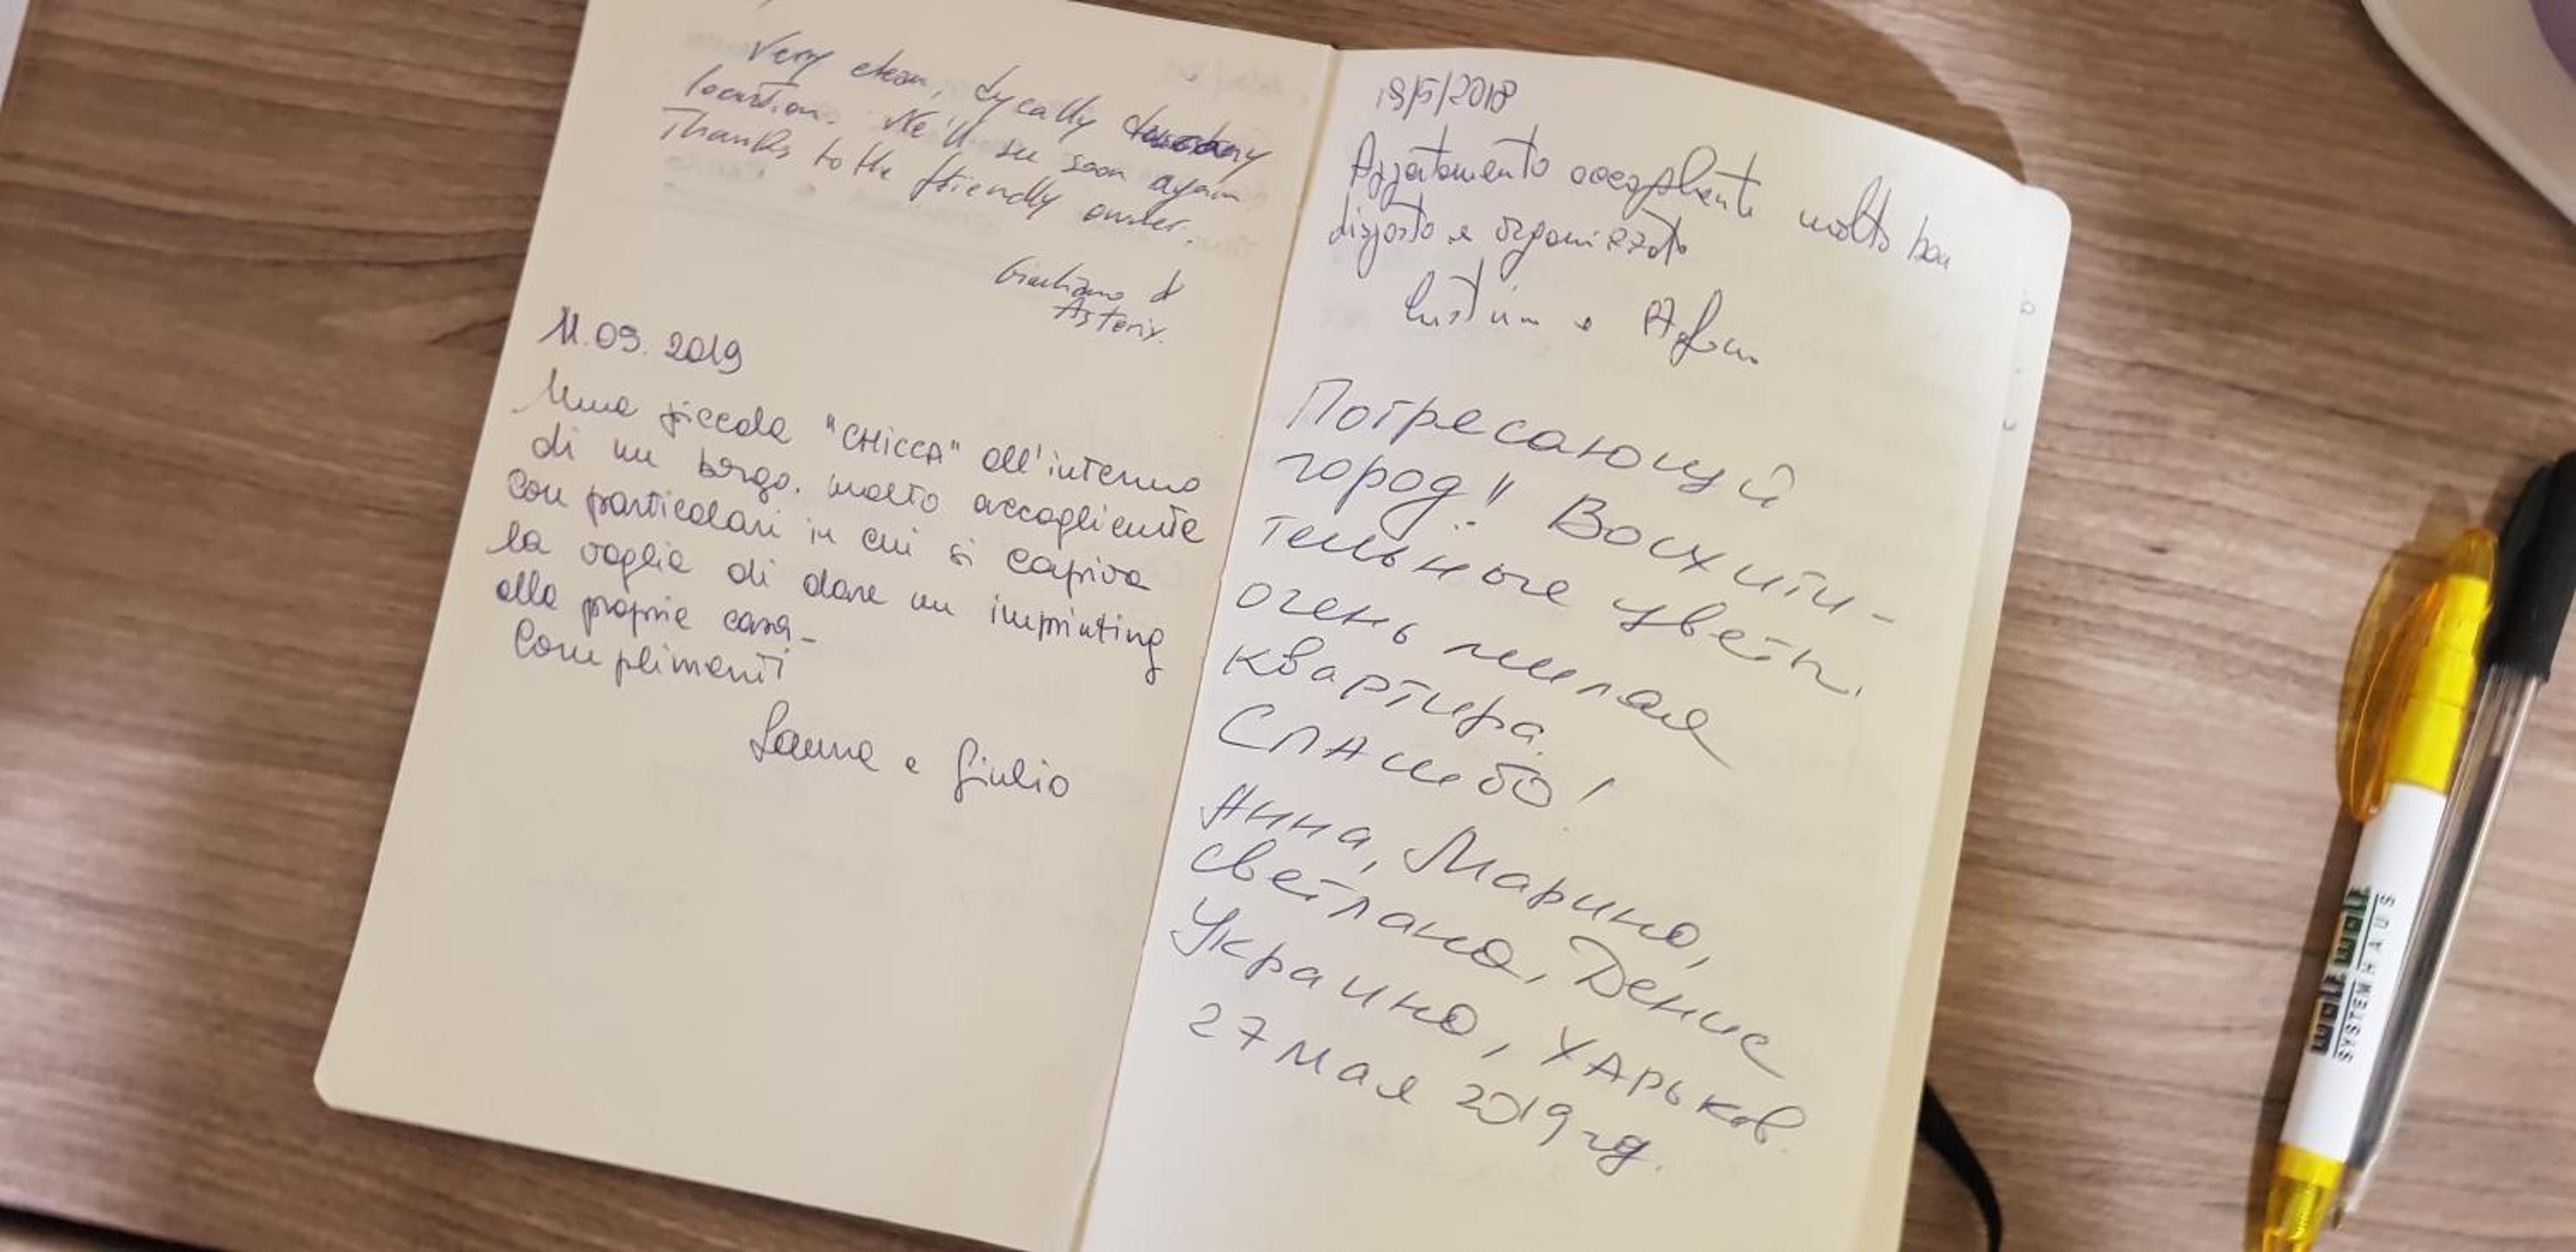 Very clean,
location. We'll see soon again
Thanks to the friendly owner.
Giuliano &
Asterix.
11.09.2019
Una piccola "CHICCA" all'interno
di un borgo. molto accogliente
con particolari in cui si capiva
la voglia di dare un imprinting
alla propria casa-
Complimenti
e Giulio
/5/2018
Appartamento accogliente molto ben
disposto e organizzato
e
Потресающий
город!! Восхити-
тельные цветы.
очень милая
квартира.
СПАСибо!
Анна, Марина,
Светлана, Денис
Украина, ХАРЬков.
27 мая 2019 г.
SYSTEMHAUS